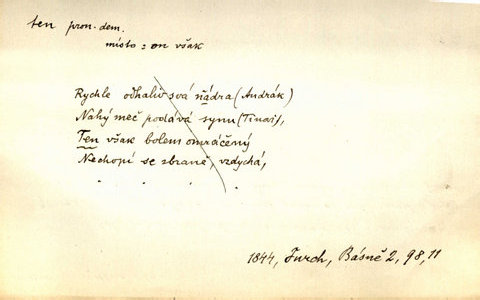 ten pron. dem.
místo: on však
Rychle odhaliv svá ňádra (Andrák)
Nahý meč podává synu (Tinaj),
Ten však bolem omráčěný
Nechopí se zbraně, vzdychá,
. . . .
1844, Furch, Básně 2, 98, 11